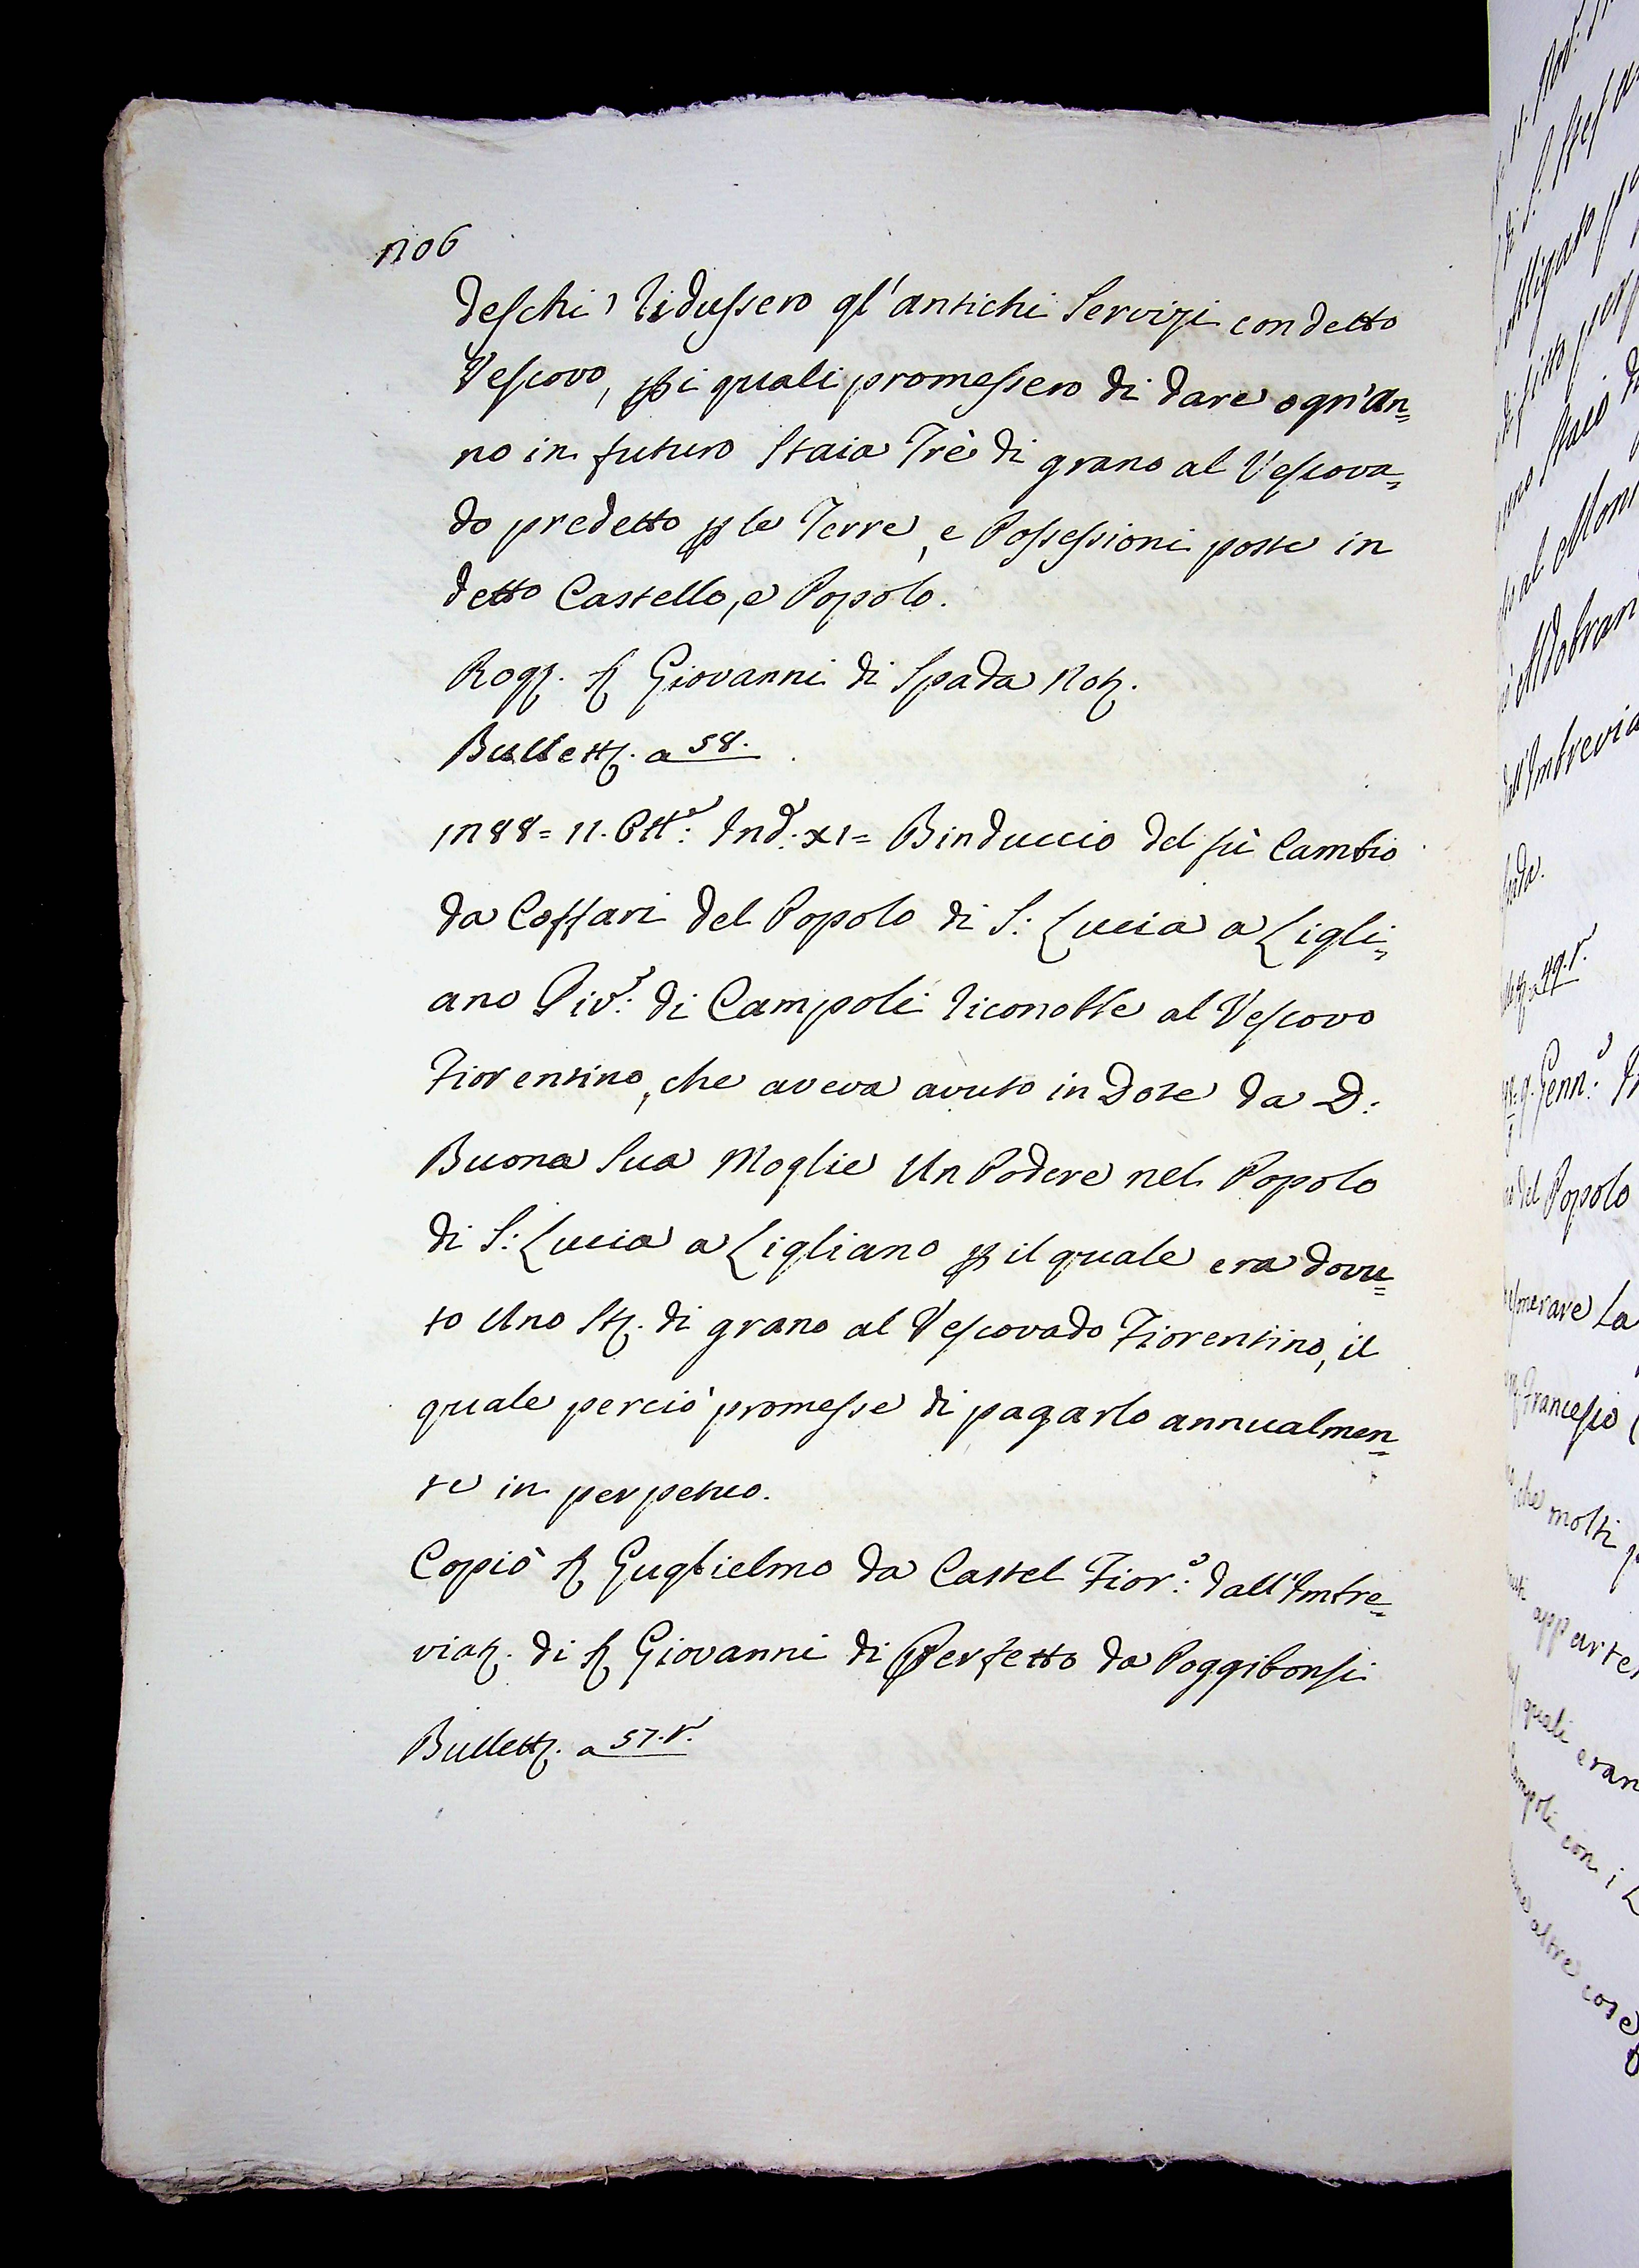 1106
deschi ridussero gl'antichi Servizi con detto
Vescovo, p i quali promessero di dare ogn'An=
no in futuro Staia Trè di grano al Vescova=
do predetto p le Terre, e Possessioni poste in
detto Castello, e Popolo.
Rog. S. Giovanni di Spada Not.
Bullett. a 58.
1288= 11. Ott.e: Ind. XI= Binduccio del fù Cambio
da Coffari del Popolo di S: Lucia a Ligli=
ano Piv.e: di Campoli riconobbe al Vescovo
Fiorentino, che aveva avuto in Dote da D:
Buona Sua Moglie Un Podere nel Popolo
di S: Lucia a Ligliano p il quale era dovu=
to Uno St. di grano al Vescovado Fiorentino, il
quale perciò promesse di pagarlo annualmen=
te in perpetuo.
Copiò S. Guglielmo da Castel Fior.o: dall'Imbre=
viat. di S. Giovanni di Perfetto da Poggibonsi
Bullett. a 57. r.
al Mon
Aldobran
dall'Imbrevia
49. r.
Genn.o:
del Popolo
La
Francesco
che molti
apparte
quali eran
Campoli con i
altre cose